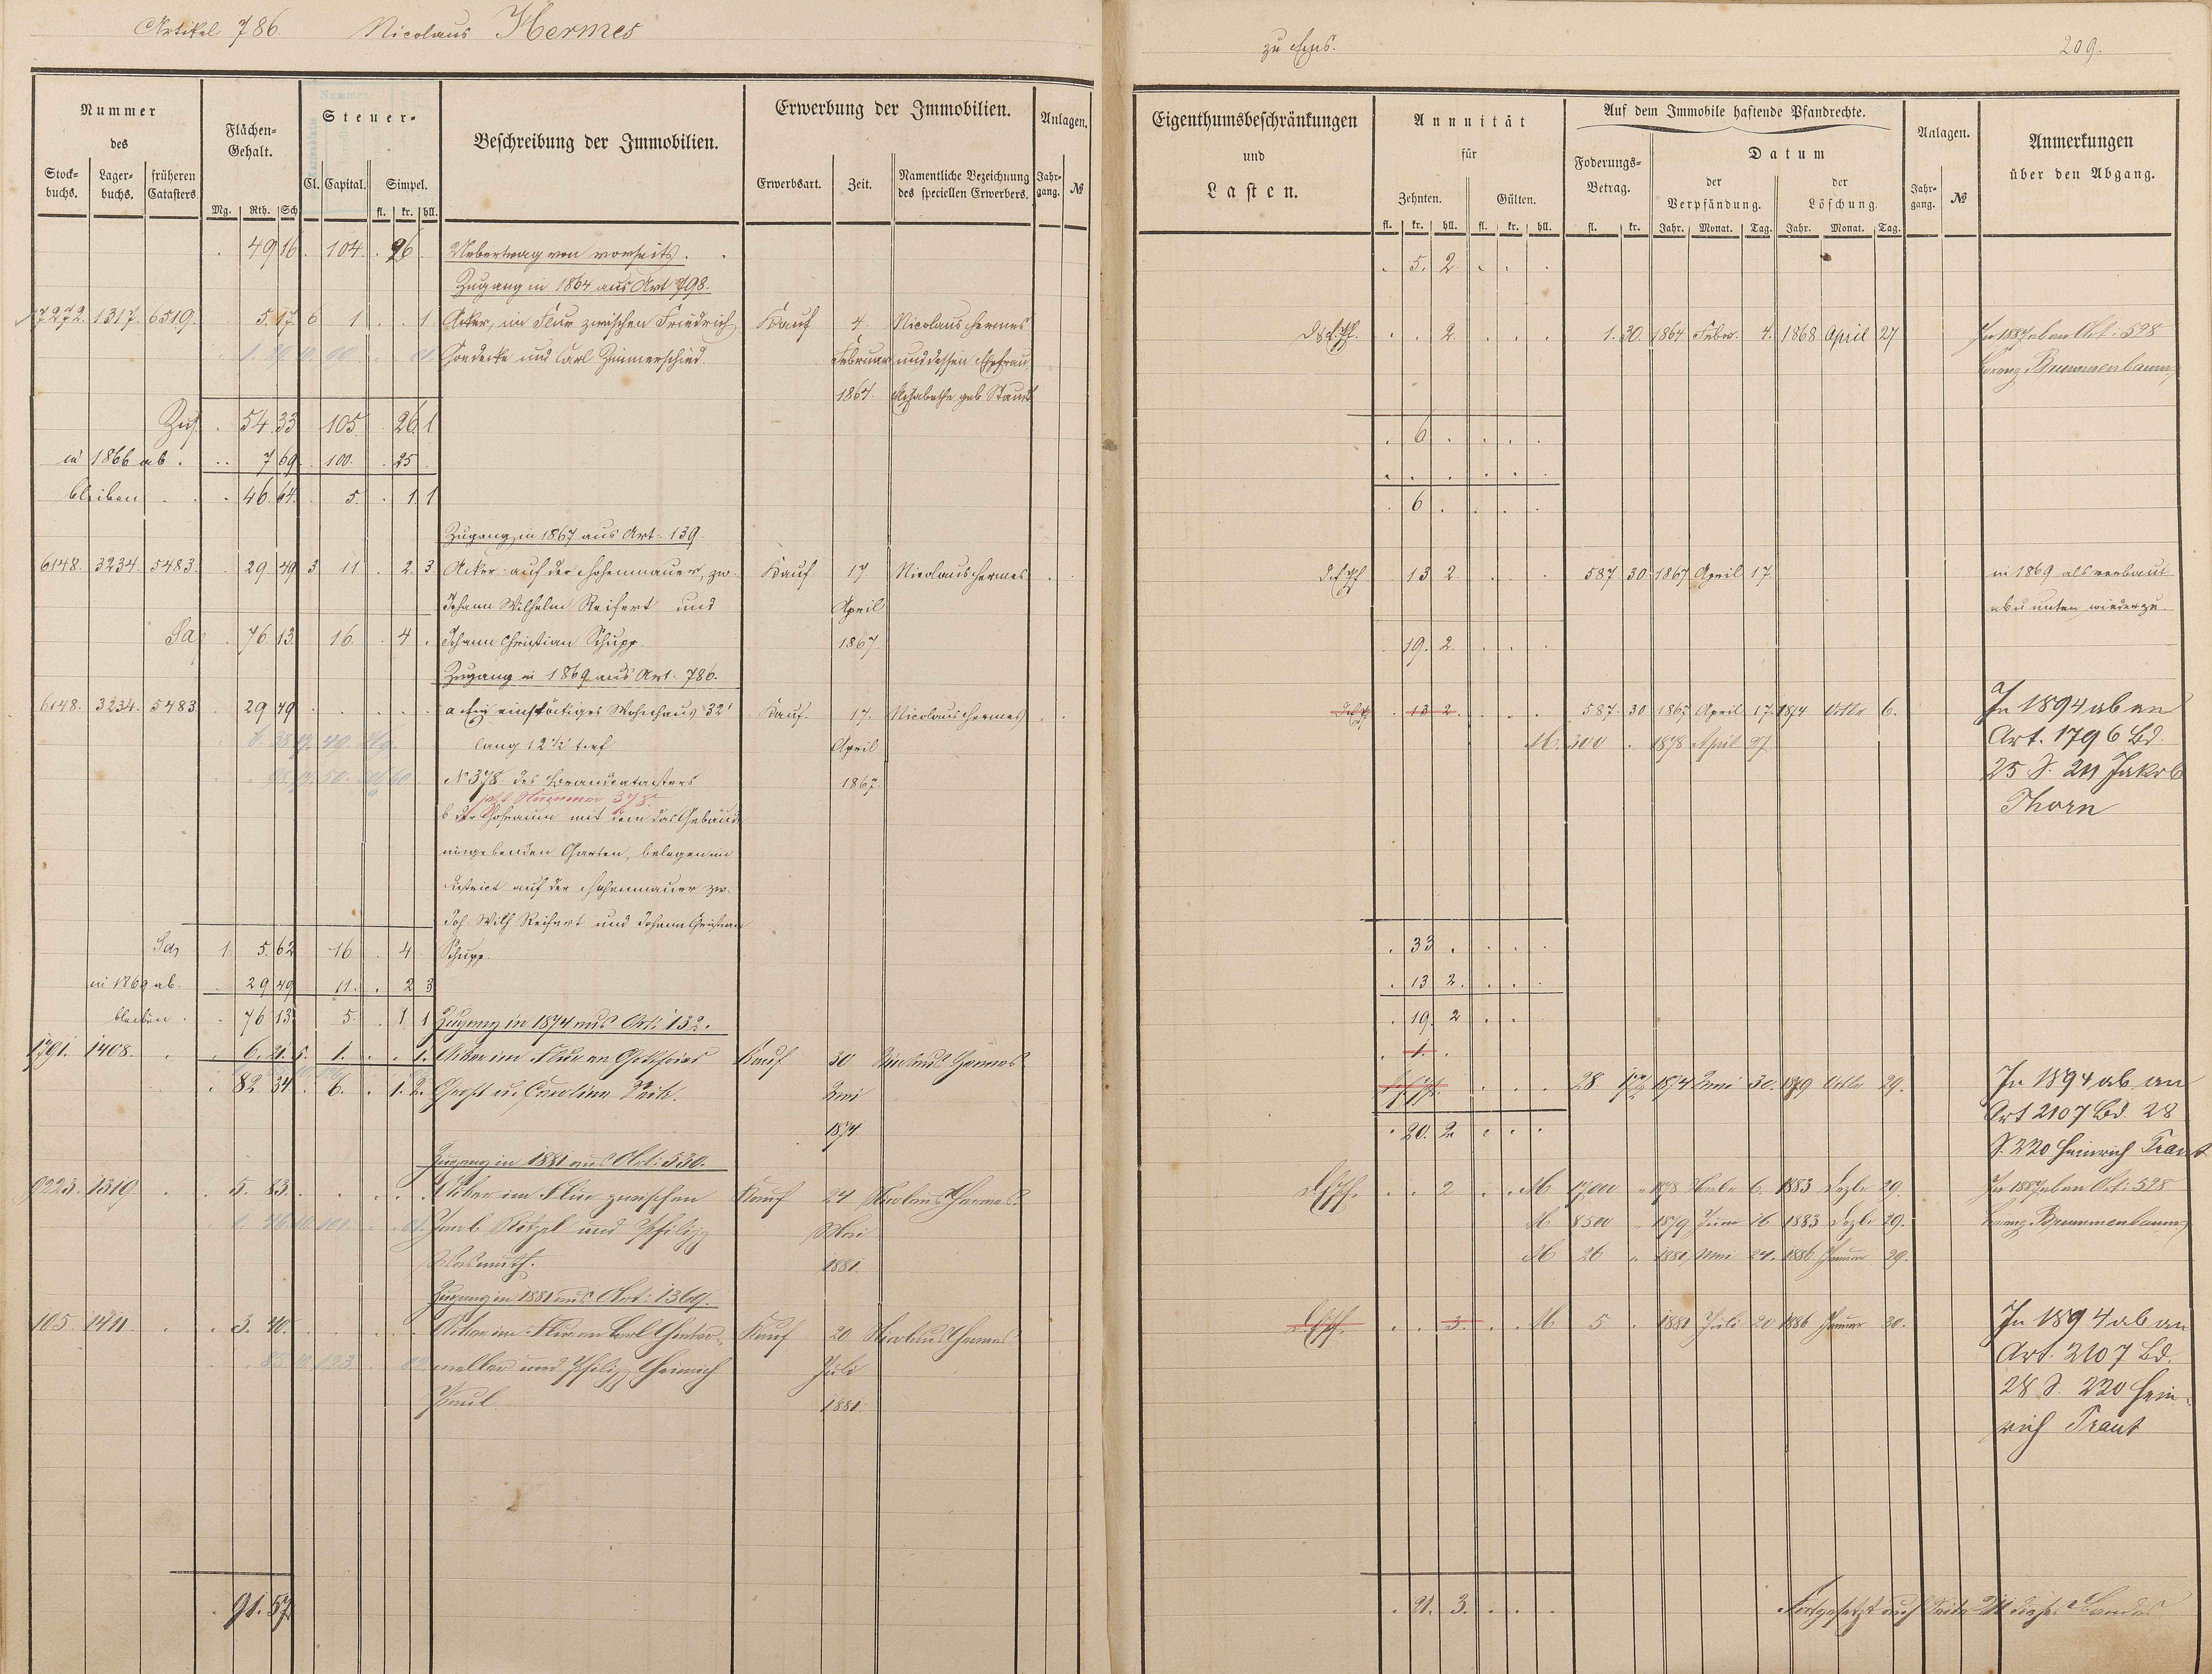 Artikel 786. Nicolaus Hermes
zu Ems. 209.
Nummer des
Stock= buchs. Lager= buchs. früheren Catasters.
Flächen= Gehalt.
Mg. Rth. Sch
Steuer=
Cl. Capital. Simpel.
fl. kr. hll.
Beschreibung der Immobilien.
Erwerbung der Immobilien.
Erwerbsart. Zeit. Namentliche Bezeichnung des speciellen Erwerbers.
Anlagen.
Jahr= gang. №
Eigenthumsbeschränkungen und Lasten.
Annuität für
Zehnten. Gülten.
fl. kr. hll. fl. kr. hll.
Auf dem Immobile haftende Pfandrechte.
Foderungs= Betrag.
fl. kr.
Datum
der Verpfändung. der Löschung.
Jahr. Monat. Tag. Jahr. Monat. Tag.
Anlagen.
Jahr= gang. №
Anmerkungen über den Abgang.
49 16 104 26 Uebertrag von vorseits. 5. 2
Zugang in 1864 aus Art 798.
7272. 1317. 6519. 5. 17. 6 1 1 Acker, im Flur zwischen Friedrich Kauf 4. Nicolaus Hermes 2 1. 30. 1864 Febr. 4. 1868 April 27 In 1887 ab an Art: 528
und Carl Zimmerschied. Februar und dessen Ehefrau Brummenbaum
1864. Elisabethe geb Staudt
Zus. 54 33 105 26 1 6
in 1866 ab. 7 69 100. 25
bleiben 46. 64. 5. 1. 1 6
Zugang in 1867 aus Art. 139.
6148. 3234. 5483. 29 49 3 11 2. 3 Acker auf der Hohenmauer, zw. Kauf 17 Nicolaus Hermes 13 2 587 30 1867 April 17. in 1869 als verbaut
Johann Wilhelm Reifert und April ab u unten wieder zu.
Sa 76 13. 16. 4 Johann Christian Schupp. 1867. 19. 2.
Zugang in 1869 aus Art. 786.
6148. 3234. 5483 29 49 a ein einstöckiges Wohnhaus 32' Kauf. 17. Nicolaus Hermes 13 2 587. 30 1867 April 17. 1874 Octbr 6. In 1894 ab an
lang 12½' tief April M. 300 1878 April 27. Art. 1796 Bd.
№ 378 des Brandcatasters 1867. 25 S. 211 Jakob
jetzt Nummer 378. Thorn
b der Hofraum mit dem das Gebäude
umgebenden Garten, belegen im
District auf der Hohenmauer zw.
Joh. Wilh Reifert und Johann Christian
Sa. 1. 5. 62 16 4 Schupp. 33
in 1869 ab. 29 49 11. 2 3 13 2.
bleiben. 76 13 5. 1 1 Zugang in 1874 aus Art: 132. 19. 2
1791. 1408. 6. 21. 5. 1. 1. Acker im Flur an Kauf 30 Nicolaus Hermes 1.
82 34 6. 1. 2. u. Caroline Mai 28. 1874 Mai 30. 1879 Octbr 29. In 1894 ab an
1874 20. 2 Art 2107 Bd. 28
S. 220 Heinrich Traut
Zugang in 1881 aus Art: 530.
9223. 1319 5. 83. Acker im Flur zwischen Kauf 24 Nicolaus Hermes 2 M 17,000 1878 6. 1883 Dezbr 29. In 1887 ab an Art: 528
Jacob und Philipp Mai M 8500 1879 Juni 16 1883 Dezbr 29. Brummenbaum
1881. M 26 1881 Mai 24. 1886 Januar 29.
Zugang in 1881 aus Art: 1369.
105. 1411 3. 40. Acker im Flur an Carl Kauf 20 Nicolaus Hermes 3. M 5 1881 Juli 20 1886 Januar 30. In 1894 ab an
und Philipp Heinrich Juli Art. 2107 Bd.
Paul 1881. 28 S. 220 Hein-
rich Traut
91. 57 21. 3. Fortgesetzt auf Seite dieses Bandes